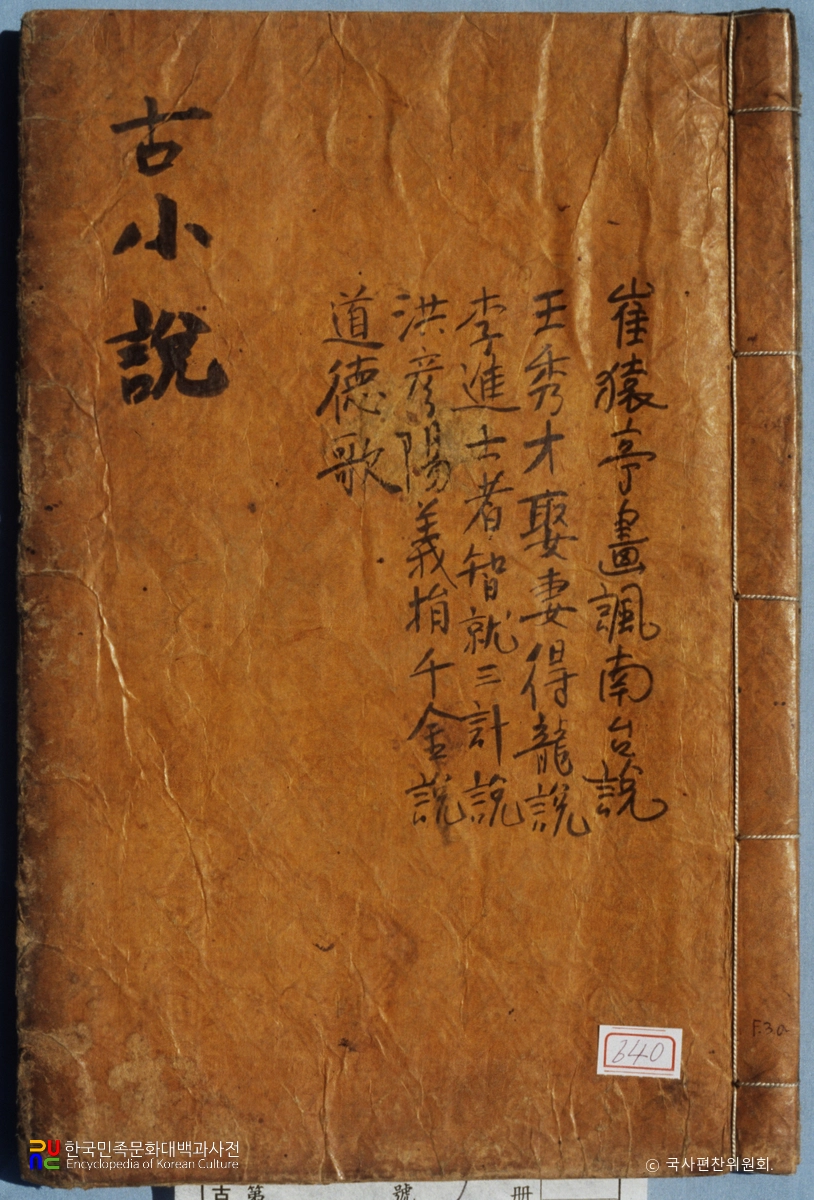 古小說
崔猿亭畫諷南台說
王秀才娶妻得龍說
李進士着智就三計說
洪彦陽義捐千金說
道德歌
640
F.3a
한국민족문화대백과사전
Encyclopedia of Korean Culture
ⓒ 국사편찬위원회.
古 第 號 冊